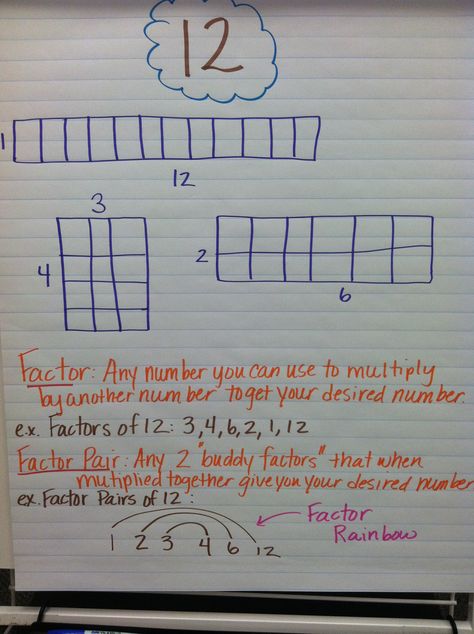 12
1
12
3
4
2
6
Factor: Any number you can use to multiply
by another number to get your desired number.
ex. Factors of 12: 3,4,6,2,1,12
Factor Pair: Any 2 "buddy factors" that when
mutiplied together give you your desired number
ex. Factor Pairs of 12:
Factor
Rainbow
1 2 3 4 6 12